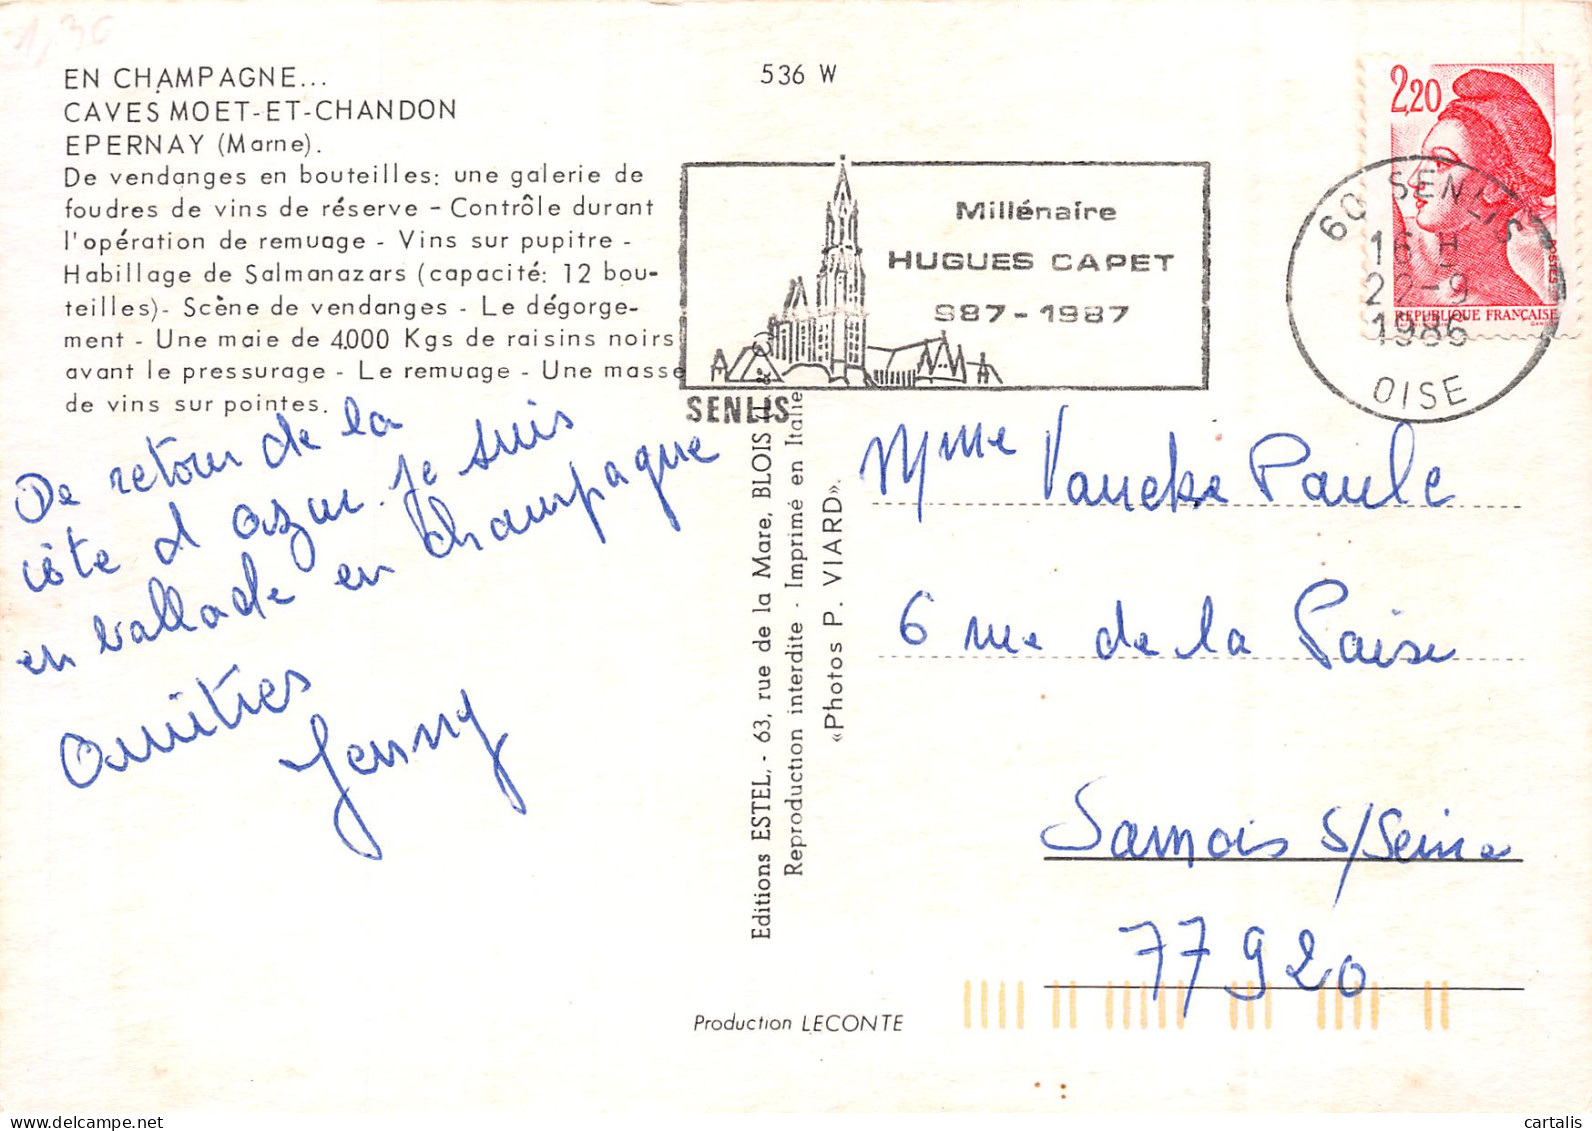 1,30
EN CHAMPAGNE...
CAVES MOET-ET-CHANDON
EPERNAY (Marne).
De vendanges en bouteilles: une galerie de
foudres de vins de réserve - Contrôle durant
l'opération de remuage - Vins sur pupitre -
Habillage de Salmanazars (capacité: 12 bou-
teilles)- Scène de vendanges - Le dégorge-
ment - Une maie de 4.000 Kgs de raisins noirs
avant le pressurage - Le remuage - Une masse
de vins sur pointes.
536 W
Millénaire
HUGUES CAPET
987-1987
SENLIS
2,20
POSTES
REPUBLIQUE FRANÇAISE
60 SENLIS
16 H
29-9
1986
OISE
De retour de la
côte d azur. je suis
en ballade en champagne
Amitiés
Jenny
Editions ESTEL, - 63, rue de la Mare, BLOIS
Reproduction interdite - Imprimé en Italie
«Photos P. VIARD».
Mme Paule
6 rue de la
Samois s/Seine
77920
Production LECONTE
cartalis